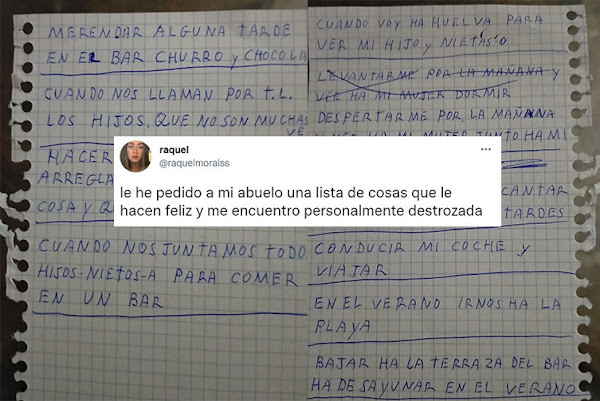 MERENDAR ALGUNA TARDE
EN EL BAR CHURRO y CHOCOLA
CUANDO NOS LLAMAN POR t.L.
LOS HIJOS. QUE NO SON MUCHAS
VE
HACER
ARREGLA
COSA y
CUANDO NOS JUNTAMOS TODO
HIJOS-NIETOS-A PARA COMER
EN UN BAR
raquel
@raquelmoralss
le he pedido a mi abuelo una lista de cosas que le
hacen feliz y me encuentro personalmente destrozada
CUANDO VOY HA HUELVA PARA
VER MI HIJO y NIETAS-O
LEVANTARME POR LA MAÑANA y
VER HA MI MUJER DORMIR
DESPERTARME POR LA MAÑANA
HA MI MUJER JUNTO HA MI
CANTAR
TARDES
CONDUCIR MI COCHE y
VIAJAR
EN EL VERANO IRNOS HA LA
PLAYA
BAJAR HA LA TERRAZA DEL BAR
HA DESAYUNAR EN EL VERANO